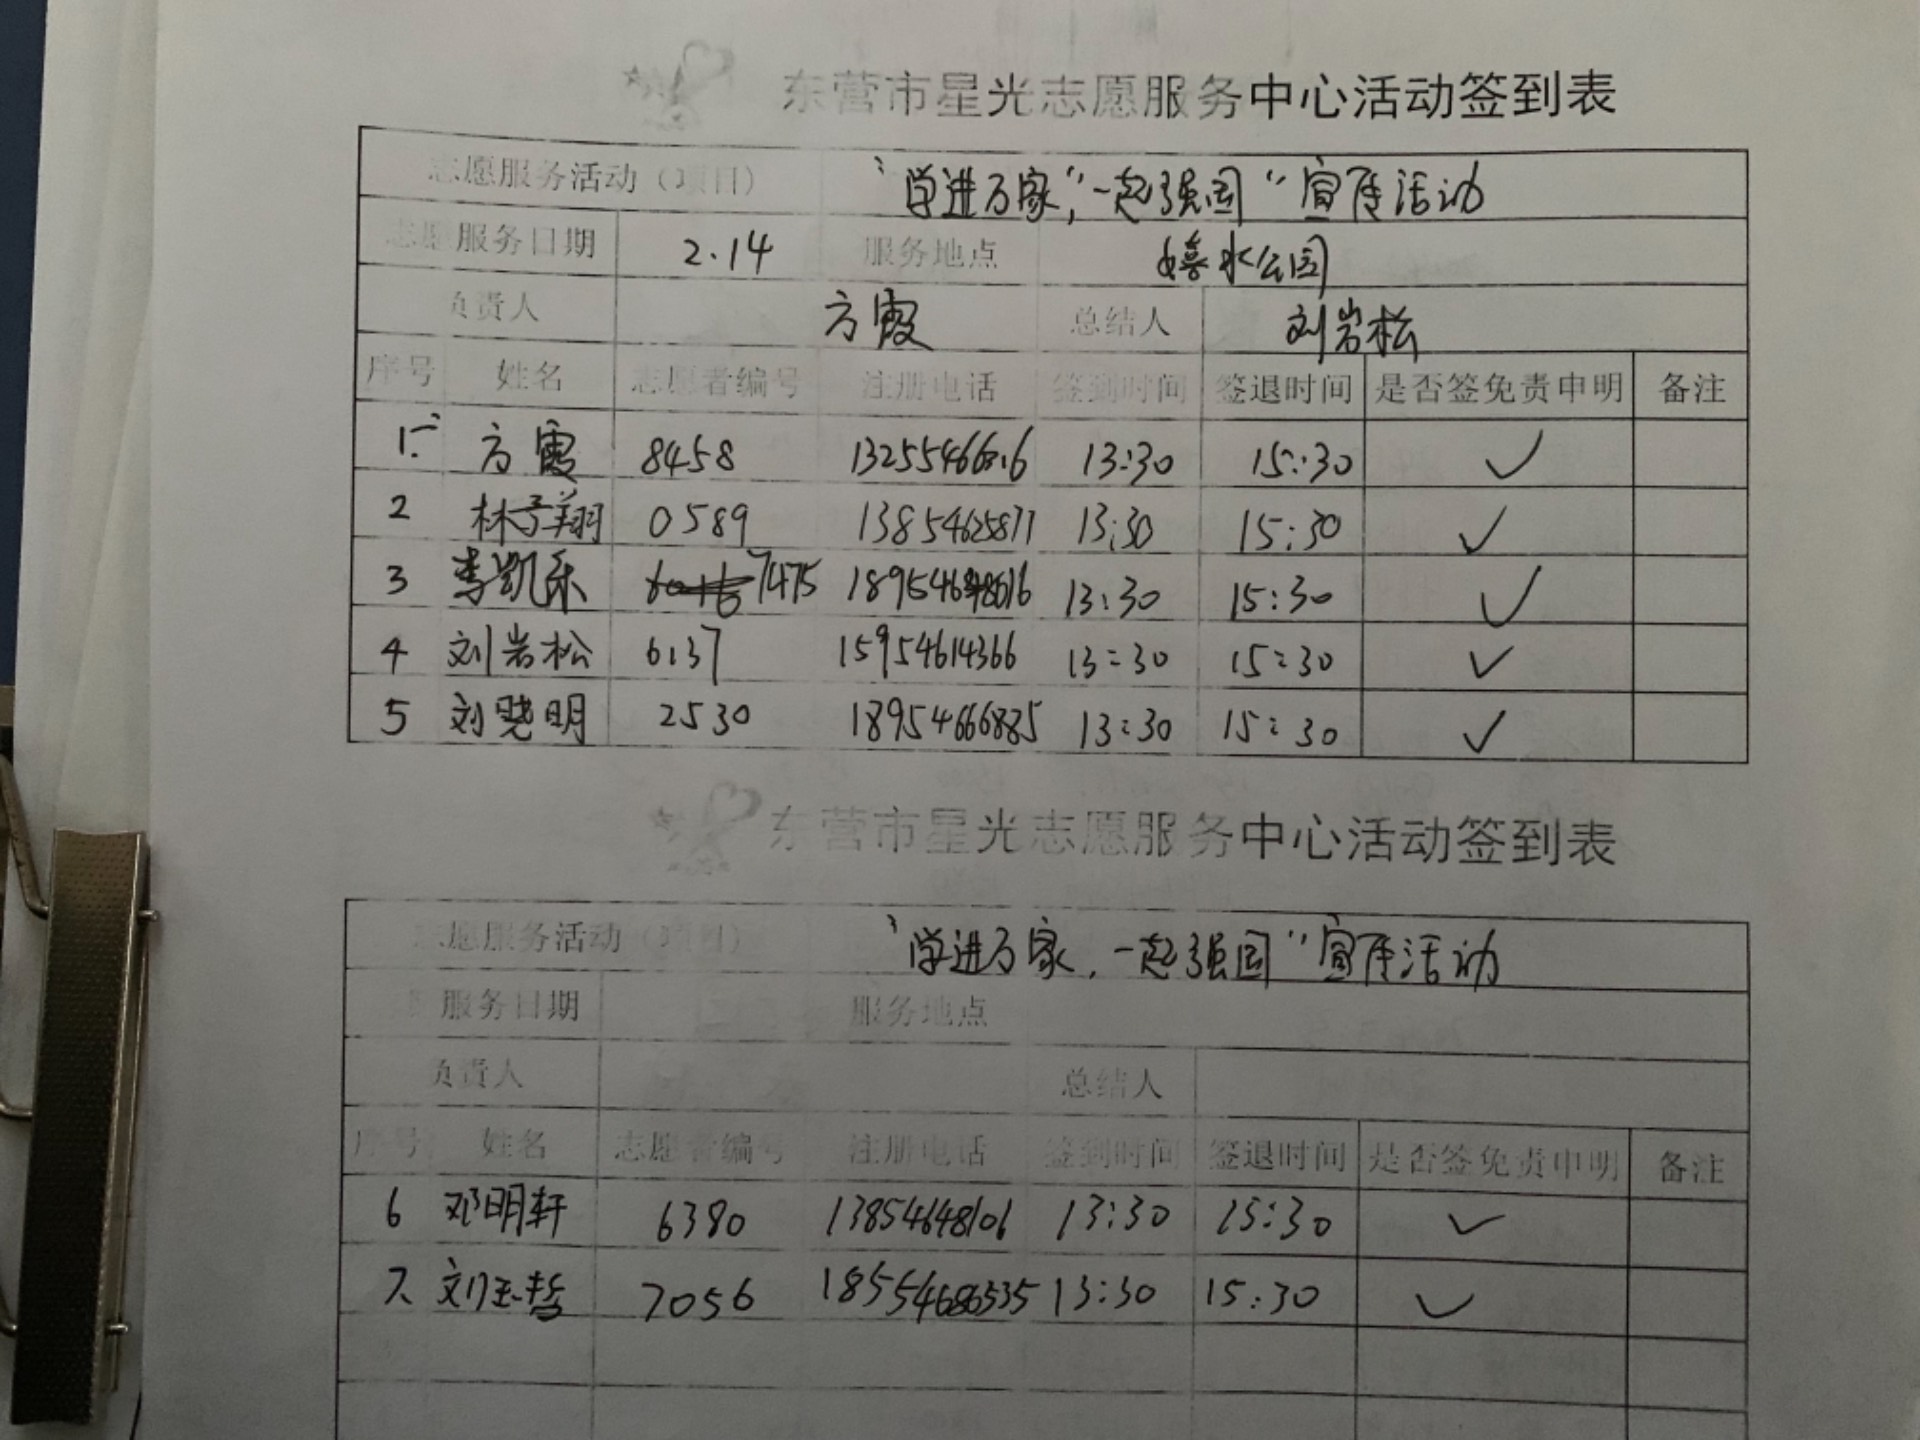 东营市星光志愿服务中心活动签到表
志愿服务活动（项目） “学进万家，“一起强国”宣传活动
志愿服务日期 2.14 服务地点 嬉水公园
负责人 方霞 总结人 刘岩松
序号 姓名 志愿者编号 注册电话 签到时间 签退时间 是否签免责申明 备注
1. 方霞 8458 13:30 15:30 ✓
2 林子翔 0589 13854625877 13:30 15:30 ✓
3 李凯乐 7475 13:30 15:30 ✓
4 刘岩松 6137 15954614366 13:30 15:30 ✓
5 刘晓明 2530 18954666885 13:30 15:30 ✓
东营市星光志愿服务中心活动签到表
志愿服务活动（项目） “学进万家，一起强国”宣传活动
服务日期 服务地点
负责人 总结人
序号 姓名 志愿者编号 注册电话 签到时间 签退时间 是否签免责申明 备注
6 邓明轩 6380 13854648106 13:30 15:30 ✓
7 刘玉哲 7056 18554686535 13:30 15:30 ✓